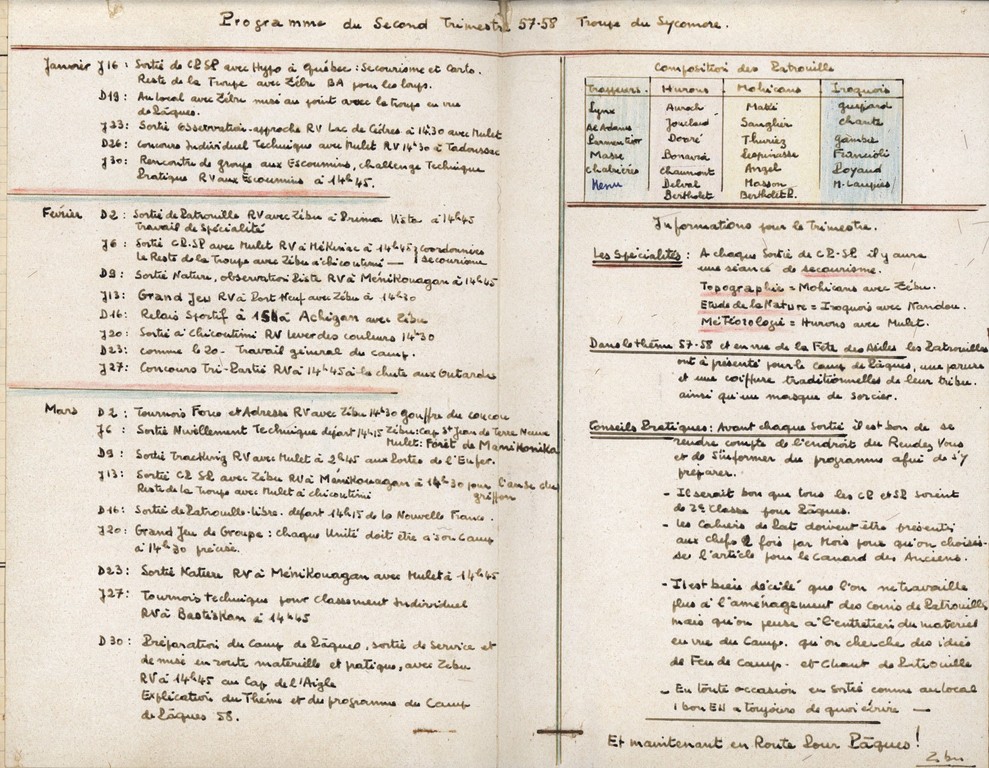 Programme du Second Trimestre 57-58 Troupe du Sycomore.
Janvier J16 : Sortie de CP.SP avec Hypo à Québec : Secourisme et Carto.
Reste de la Troupe avec Zébu BA pour les
D19 : Au local avec Zébu mise au point avec la troupe en vue
de Pâques.
J23 : Sortie Observation-approche RV Lac de Cèdres à 14h30 avec Mulet
D26 : Concours Individuel Technique avec Mulet RV 14h30 à Tadoussac
J30 : Rencontre de groupe aux Escoumins, challenge Technique
Pratique RV aux Escoumins à 14h45.
Février D2 : Sortie de Patrouille RV avec Zébu à Prima Vista à 14h45
Travail de Spécialité
J6 : Sortie CP.SP avec Mulet RV à Mékinac à 14h45 } coordonnées
Le Reste de la Troupe avec Zébu à chicoutimi — } secourisme
D9 : Sortie Nature, observation Piste RV à MéniKouagan à 14h45
J13 : Grand Jeu RV à Port Neuf avec Zébu à 14h30
D16 : Relais Sportif à 15h à Achigan avec Zébu
J20 : Sortie à Chicoutimi RV lever des couleurs 14h30
D23 : comme le 20 - Travail général du camp.
J27 : Concours Tri-Partié RV à 14h45 à la chute aux Outardes
Mars D2 : Tournois Force et Adresse RV avec Zébu 14h30 gouffre du coucou
J6 : Sortie Nivellement Technique départ 14h15 Zébu : cap St Jean de Terre Neuve
Mulet : Forêt de ManiKoniKa
D9 : Sortie Tracking RV avec Mulet à 2h45 aux Portes de l'Enfer.
J13 : Sortie CP SP avec Zébu RV à MéniKouagan à 14h30 pour l'anse du
Reste de la Troupe avec Mulet à chicoutimi griffon
D16 : Sortie de Patrouille-libre. départ 14h15 de la Nouvelle France.
J20 : Grand Jeu de Groupe : chaque Unité doit être à son Camp
à 14h30 précise.
D23 : Sortie Nature RV à MéniKouagan avec Mulet à 14h45
J27 : Tournois technique pour Classement Individuel
RV à BastisKan à 14h45
D30 : Préparation du Camp de Pâques, sortie de Service et
de mise en route matérielle et pratique, avec Zébu
RV à 14h45 au Cap de l'Aigle
Explication du Thème et du programme du Camp
de Pâques 58.
Composition des Patrouille
Trappeurs. Hurons Mohicans Iroquois
Lynx Auroch Makki guépard
Ac Adams Jouclard Sanglier chante
Doaré Thuriez gambie
Masse Bonavia Lespinasse Francioli
chabrières Chaumont Anzel Poyaud
Menu Delval Masson M. Laugier
Bertholet Bertholet P.
Informations pour le Trimestre.
Les Spécialités : A chaque Sortie de CP-SP il y aura
une séance de secourisme.
Topographie = Mohicans avec Zébu.
Etude de la Nature = Iroquois avec Nandou.
Météorologie = Hurons avec Mulet.
Dans le thème 57-58 et en vue de la Fête des Asiles les Patrouilles
ont à présenter pour le camp de Pâques, une parure
et une coiffure traditionnelles de leur tribu.
ainsi qu'un masque de sorcier.
Conseils Pratiques : Avant chaque Sortie il est bon de se
rendre compte de l'endroit du Rendez Vous
et de S'informer du programme afin de s'y
préparer.
- Il serait bon que tous les CP et SP soient
de 2e Classe pour Pâques.
- les Cahiers de Pat doivent être présentés
aux chefs 2 fois par Mois pour qu'on choisis-
se l'article pour le Canard des Anciens.
- Il est bien décidé que l'on ne travaille
plus à l'aménagement des Coins de Patrouille
mais qu'on pense à l'entretien du matériel
en vue du Camp. qu'on cherche des idées
de Feu de camp. et Chant de Patrouille
- En toute occasion en Sortie comme au local
1 bon EU a toujours de quoi écrire —
Et maintenant en Route Pour Pâques !
Zébu